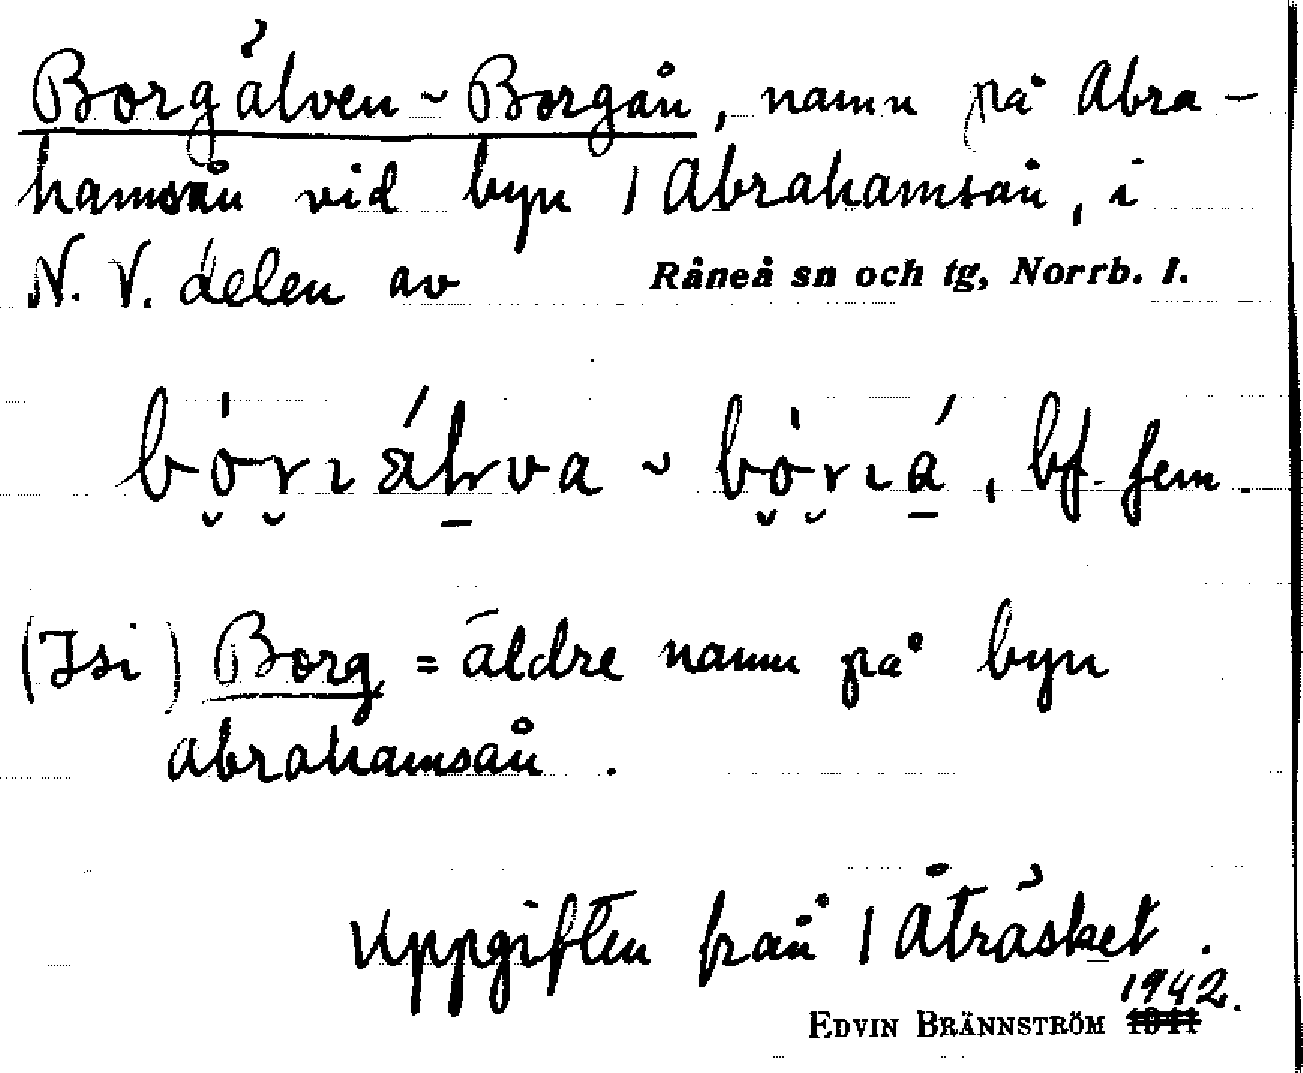 Borgälven ~ Borgån, namn på Abra-
hamsån vid byn / Abrahamsån, i
N. V. delen av Råneå sn och tg, Norrb. l.
bf. fem.
(Isi) Borg = äldre namn på byn
Abrahamsån.
Uppgiften från / Åträsket.
1942.
EDVIN BRÄNNSTRÖM 1941